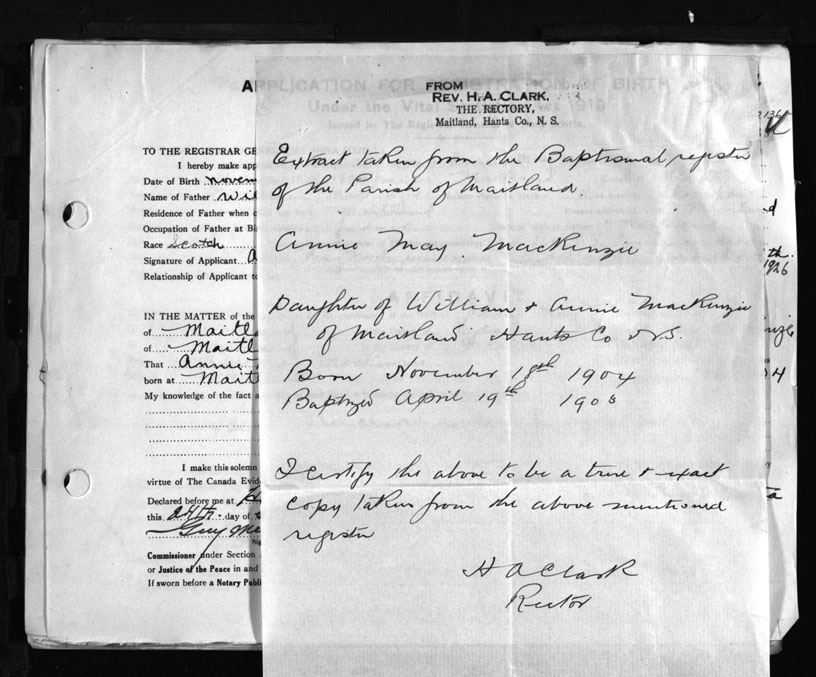 FROM
REV. H. A. CLARK.
THE RECTORY,
Maitland, Hants Co., N. S.
Extract taken from the Baptismal register
of the Parish of Maitland.
Annie May MacKenzie
Daughter of William & Annie MacKenzie
of Maitland Hants Co N.S.
Born November 18th 1904
Baptized April 19th 1908
I certify the above to be a true & exact
copy taken from the above mentioned
register
H A Clark
Rector
APPLICATION FOR REGISTRATION OF BIRTH
Under the Vital 1919
Issued by The Registrar
TO THE REGISTRAR GE
I hereby make app
Date of Birth Novem
Name of Father Wil
Residence of Father when c
Occupation of Father at Bi
Race Scotch
Signature of Applicant A
Relationship of Applicant to
AFFIDAVIT
IN THE MATTER of the
of Maitla
of Maitl
That Annie
born at Mait
My knowledge of the fact a
I make this solemn
virtue of The Canada Evid
Declared before me at H
this 24th day of
Guy
Commissioner under Section
or Justice of the Peace in and
If sworn before a Notary Publi
136
d
th.
1926
nzie
4
a